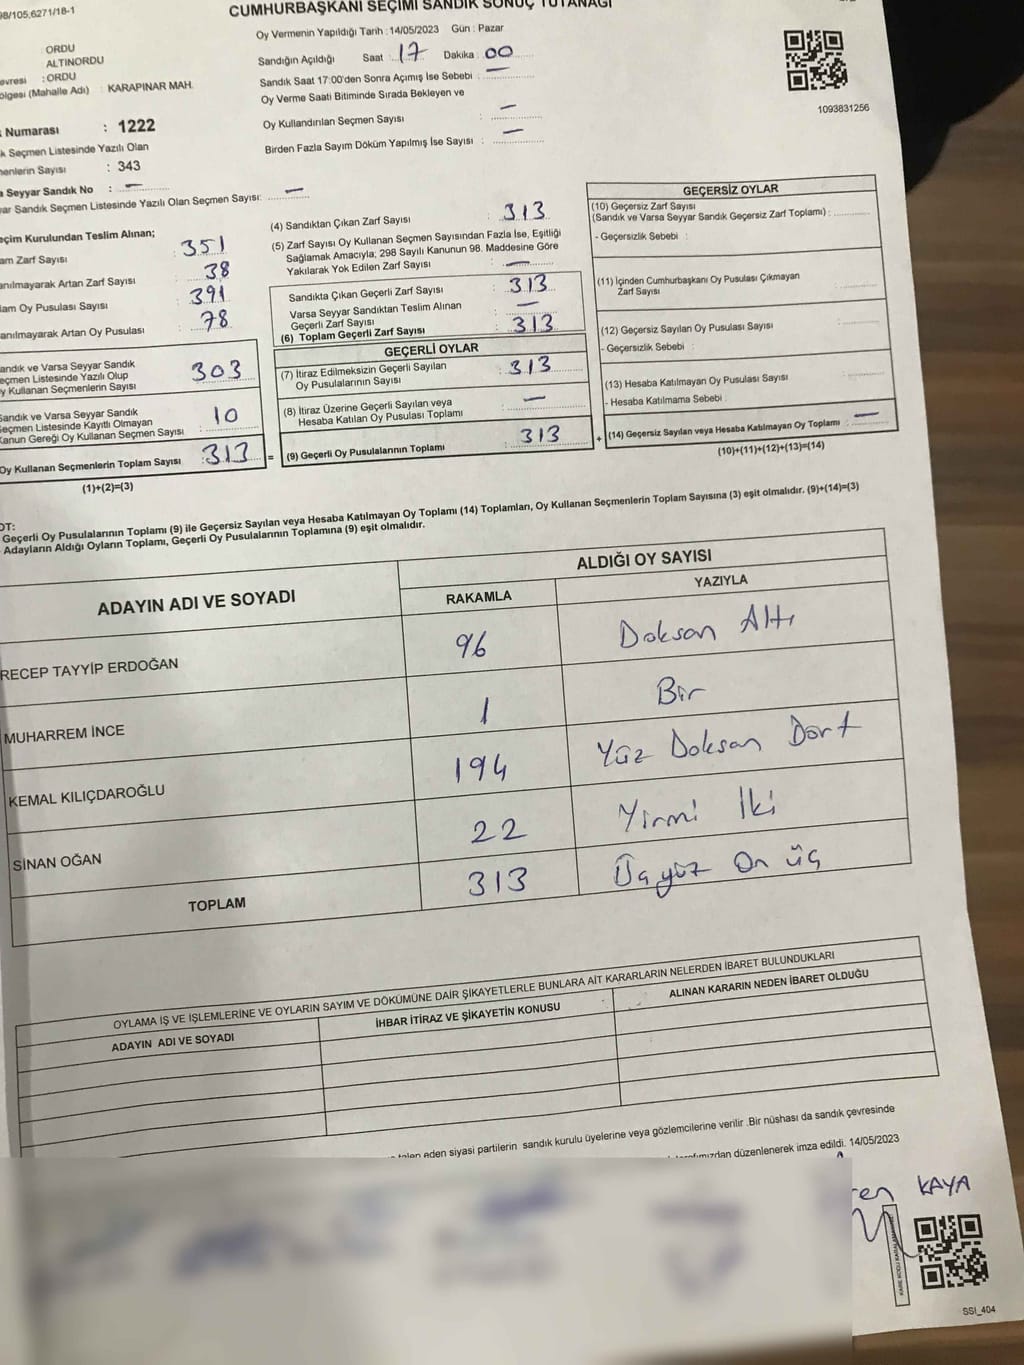 98/105,6271/18-1
CUMHURBAŞKANI SEÇİMİ SANDIK SONUÇ TUTANAĞI
ORDU
ALTINORDU
: ORDU
(Mahalle Adı) : KARAPINAR MAH.
Numarası : 1222
Seçmen Listesinde Yazılı Olan
Sayısı : 343
Seyyar Sandık No : —
Sandık Seçmen Listesinde Yazılı Olan Seçmen Sayısı: —
Oy Vermenin Yapıldığı Tarih : 14/05/2023 Gün : Pazar
Sandığın Açıldığı Saat : 17 Dakika : 00
Sandık Saat 17:00'den Sonra Açımış İse Sebebi : —
Oy Verme Saati Bitiminde Sırada Bekleyen ve
Oy Kullandırılan Seçmen Sayısı : —
Birden Fazla Sayım Döküm Yapılmış İse Sayısı : —
1093831256
Kurulundan Teslim Alınan;
Zarf Sayısı : 351
Artan Zarf Sayısı : 38
Oy Pusulası Sayısı : 391
Artan Oy Pusulası : 78
Sandık ve Varsa Seyyar Sandık
Seçmen Listesinde Yazılı Olup
Oy Kullanan Seçmenlerin Sayısı : 303
Sandık ve Varsa Seyyar Sandık
Seçmen Listesinde Kayıtlı Olmayan
Kanun Gereği Oy Kullanan Seçmen Sayısı : 10
Oy Kullanan Seçmenlerin Toplam Sayısı : 313 =
(1)+(2)=(3)
(4) Sandıktan Çıkan Zarf Sayısı : 313
(5) Zarf Sayısı Oy Kullanan Seçmen Sayısından Fazla İse, Eşitliği
Sağlamak Amacıyla; 298 Sayılı Kanunun 98. Maddesine Göre
Yakılarak Yok Edilen Zarf Sayısı : —
Sandıkta Çıkan Geçerli Zarf Sayısı : 313
Varsa Seyyar Sandıktan Teslim Alınan
Geçerli Zarf Sayısı : —
(6) Toplam Geçerli Zarf Sayısı : 313
GEÇERLİ OYLAR
(7) İtiraz Edilmeksizin Geçerli Sayılan
Oy Pusulalarının Sayısı : 313
(8) İtiraz Üzerine Geçerli Sayılan veya
Hesaba Katılan Oy Pusulası Toplamı : —
(9) Geçerli Oy Pusulalarının Toplamı : 313 +
GEÇERSİZ OYLAR
(10) Geçersiz Zarf Sayısı
(Sandık ve Varsa Seyyar Sandık Geçersiz Zarf Toplamı) :
- Geçersizlik Sebebi :
(11) İçinden Cumhurbaşkanı Oy Pusulası Çıkmayan
Zarf Sayısı :
(12) Geçersiz Sayılan Oy Pusulası Sayısı :
- Geçersizlik Sebebi :
(13) Hesaba Katılmayan Oy Pusulası Sayısı :
- Hesaba Katılmama Sebebi :
(14) Geçersiz Sayılan veya Hesaba Katılmayan Oy Toplamı : —
(10)+(11)+(12)+(13)=(14)
Geçerli Oy Pusulalarının Toplamı (9) ile Geçersiz Sayılan veya Hesaba Katılmayan Oy Toplamı (14) Toplamları, Oy Kullanan Seçmenlerin Toplam Sayısına (3) eşit olmalıdır. (9)+(14)=(3)
Adayların Aldığı Oyların Toplamı, Geçerli Oy Pusulalarının Toplamına (9) eşit olmalıdır.
ADAYIN ADI VE SOYADI
ALDIĞI OY SAYISI
RAKAMLA YAZIYLA
RECEP TAYYİP ERDOĞAN 96 Doksan Altı
MUHARREM İNCE 1 Bir
KEMAL KILIÇDAROĞLU 194 Yüz Doksan Dört
SİNAN OĞAN 22 Yirmi İki
TOPLAM 313 Üçyüz On üç
OYLAMA İŞ VE İŞLEMLERİNE VE OYLARIN SAYIM VE DÖKÜMÜNE DAİR ŞİKAYETLERLE BUNLARA AİT KARARLARIN NELERDEN İBARET BULUNDUKLARI
ADAYIN ADI VE SOYADI İHBAR İTİRAZ VE ŞİKAYETİN KONUSU ALINAN KARARIN NEDEN İBARET OLDUĞU
talep eden siyasi partilerin sandık kurulu üyelerine veya gözlemcilerine verilir .Bir nüshası da sandık çevresinde
tarafımızdan düzenlenerek imza edildi. 14/05/2023
KAYA
SSI_404